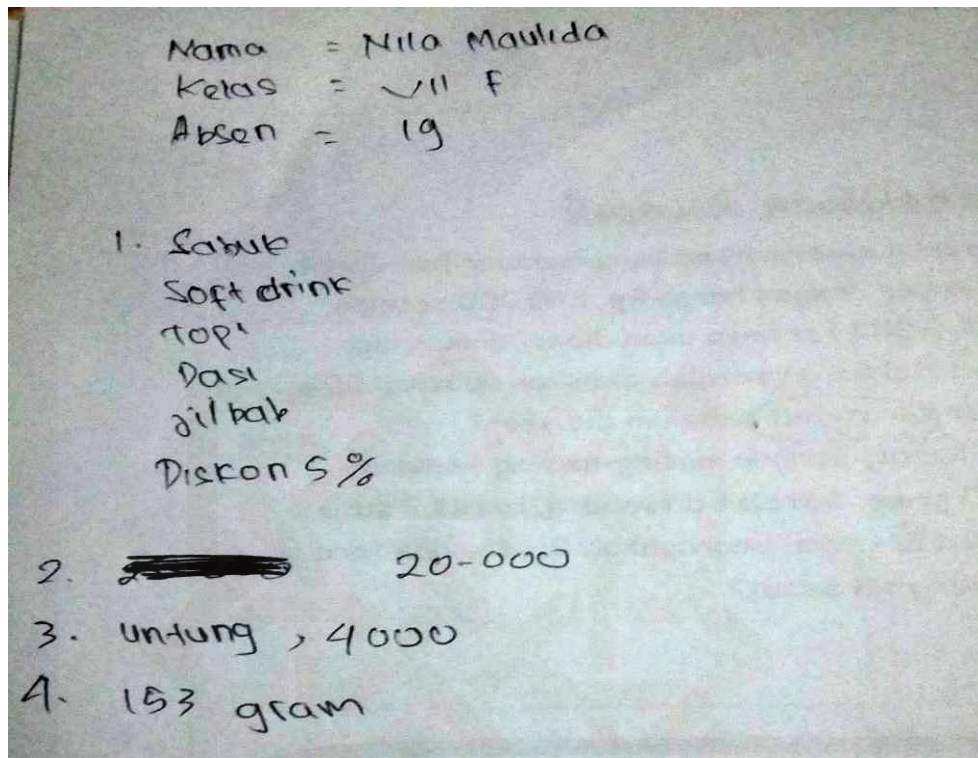 Nama = Nila Maulida
Kelas = VII F
Absen = 19
1. Sabuk
Soft drink
Topi
Dasi
Jilbab
Diskon 5%
2. 20-000
3. untung, 4000
4. 153 gram